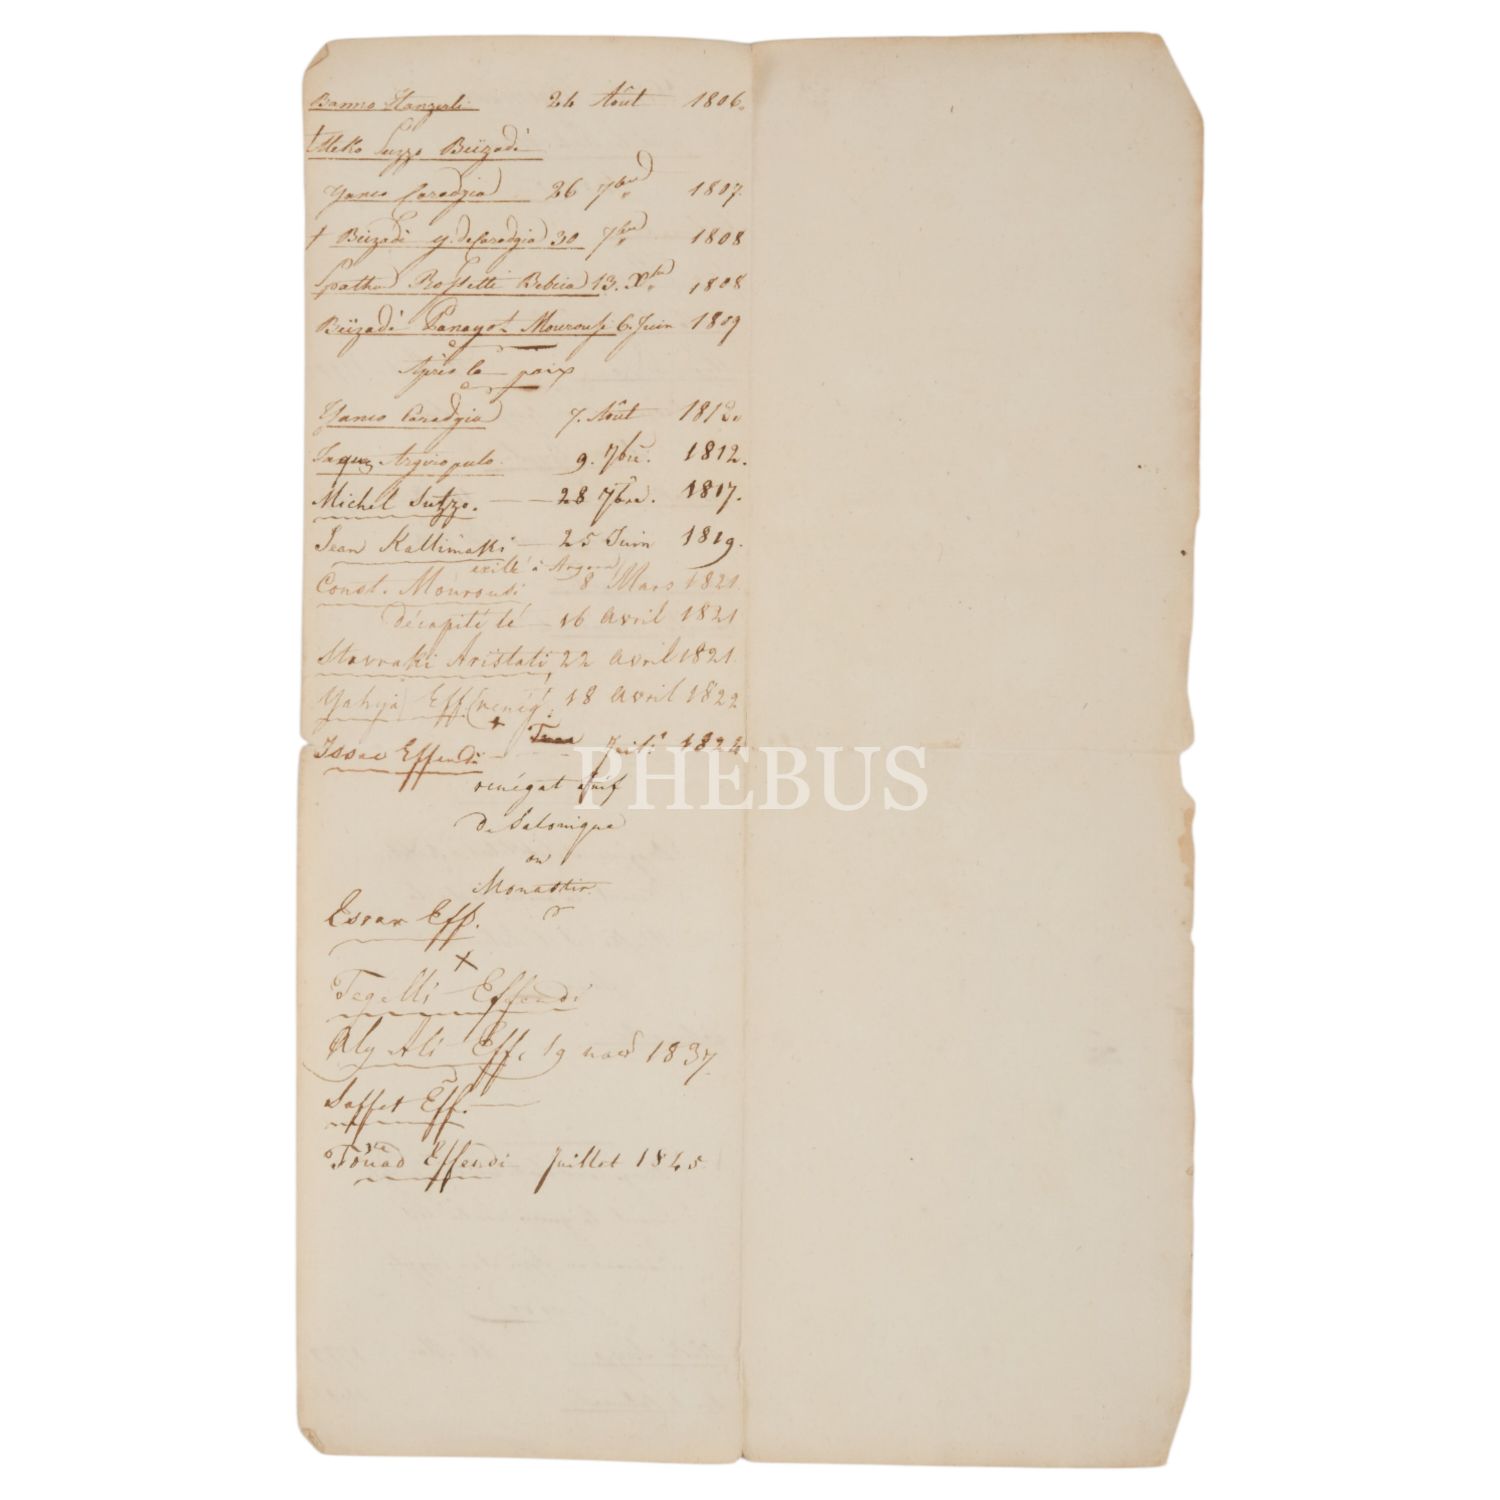 Banno Hanzerli 24 Août 1806.
† Aleko Suzzo Beïzadé
Yanco Caradgia 26 7bre 1807.
† Beïzadé y. de Caradgia 30 7bre 1808
Spathar Rossetti Bibica 13. Xbre 1808
Beïzadé Panayot Mourousi 6. Juin 1809
Après la paix
Yanco Caradgia 7. Août 1812.
Jaques Argiropulo 9. 7bre. 1812.
Michel Sutzzo. 28 7bre. 1817.
Jean Kallimaki 25 Juin 1819.
exilé à Angora
Const. Mourousi 8 Mars 1821.
décapité le 16 avril 1821
Stavraki Aristati, 22 avril 1821.
Yahyja Eff. (renég. 18 avril 1822
Isaac Effendi Juil. 1824
renégat Juif
de Salonique
ou
Monastir.
Esrar Eff.
Tegelli Effendi
Aly Ali Eff. 19 1837.
Saffet Eff.
Fouad Effendi Juillet 1845
PHEBUS